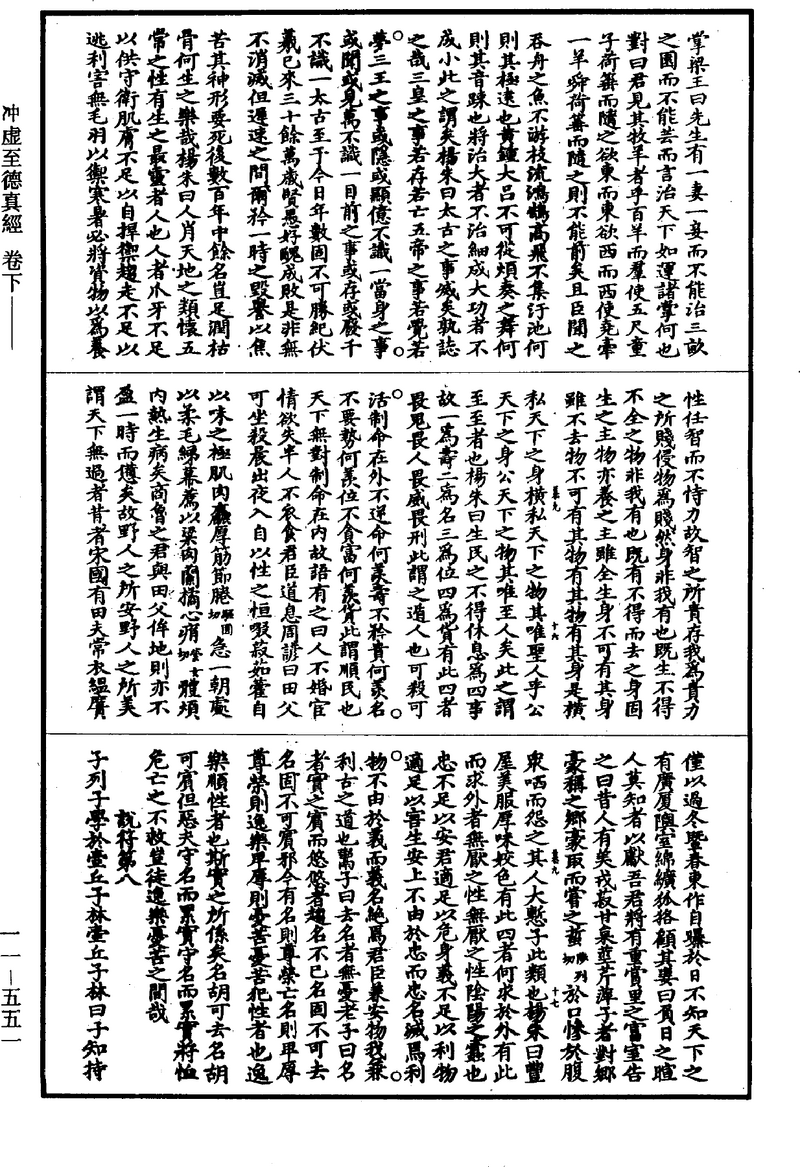 掌梁王曰先生有一妻一妾而不能治三畝
之園而不能芸而言治天下如運諸掌何也
對曰君見其牧羊者乎百羊而羣使五尺童
子荷箠而隨之欲東而東欲西而西使堯牽
一羊舜荷箠而隨之則不能前矣且臣聞之
吞舟之魚不游枝流鴻鵠高飛不集汙池何
則其極遠也黃鍾大呂不可從煩奏之舞何
則其音踈也將治大者不治細成大功者不
成小此之謂矣楊朱曰太古之事滅矣孰誌
之哉三皇之事若存若亡五帝之事若覺若
夢三王之事或隱或顯億不識一當身之事
或聞或見萬不識一目前之事或存或廢千
不識一太古至于今日年數固不可勝紀伏
羲已來三十餘萬歲賢愚好醜成敗是非無
不消滅但遲速之間爾矜一時之毀譽以焦
苦其神形要死後數百年中餘名豈足潤枯
骨何生之樂哉楊朱曰人肖天地之類懷五
常之性有生之最靈者人也人者爪牙不足
以供守衛肌膚不足以自捍禦趨走不足以
逃利害無毛羽以禦寒暑必將資物以為養
性任智而不恃力故智之所貴存我為貴力
之所賤侵物為賤然身非我有也既生不得
不全之物非我有也既有不得而去之身固
生之主物亦養之主雖全生身不可有其身
雖不去物不可有其物有其物有其身是橫
私天下之身橫私天下之物其唯聖人乎公
十六
天下之身公天下之物其唯至人矣此之謂
至至者也楊朱曰生民之不得休息為四事
故一為壽二為名三為位四為貨有此四者
畏鬼畏人畏威畏刑此謂之遁人也可殺可
活制命在外不逆命何羨壽不矜貴何羨名
不要勢何羨位不貪富何羨貨此謂順民也
天下無對制命在內故語有之曰人不婚宦
情欲失半人不衣食君臣道息周諺曰田父
可坐殺晨出夜入自以性之恒啜菽茹藿自
以味之極肌肉麤厚筋節腃急一朝處
以柔毛綈幕薦以粱肉蘭橘心㾓體煩
內熱生病矣商魯之君與田父侔地則亦不
盈一時而憊矣故野人之所安野人之所美
謂天下無過者昔者宋國有田夫常衣縕黂
僅以過冬暨春東作自曝於日不知天下之
有廣厦隩室綿纊狐狢顧其妻曰負日之暄
人莫知者以獻吾君將有重賞里之富室告
之曰昔人有美戎菽甘枲莖芹萍子者對鄉
豪稱之鄉豪取而嘗之蜇於口慘於腹
眾哂而怨之其人大慙子此類也楊朱曰豐
十七
屋美服厚味姣色有此四者何求於外有此
而求外者無厭之性無厭之性陰陽之蠹也
忠不足以安君適足以危身義不足以利物
適足以害生安上不由於忠而忠名滅焉利
物不由於義而義名絕焉君臣兼安物我兼
利古之道也鬻子曰去名者無憂老子曰名
者實之賓而悠悠者趨名不已名固不可去
名固不可賓邪今有名則尊榮亡名則卑辱
尊榮則逸樂卑辱則憂苦憂苦犯性者也逸
樂順性者也斯實之所係矣名胡可去名胡
可賓但惡夫守名而累實守名而累實將恤
危亡之不救豈徒逸樂憂苦之間哉
說符第八
子列子學於壺丘子林壺丘子林曰子知持
冲虚至德真經 卷下
一一—五五一